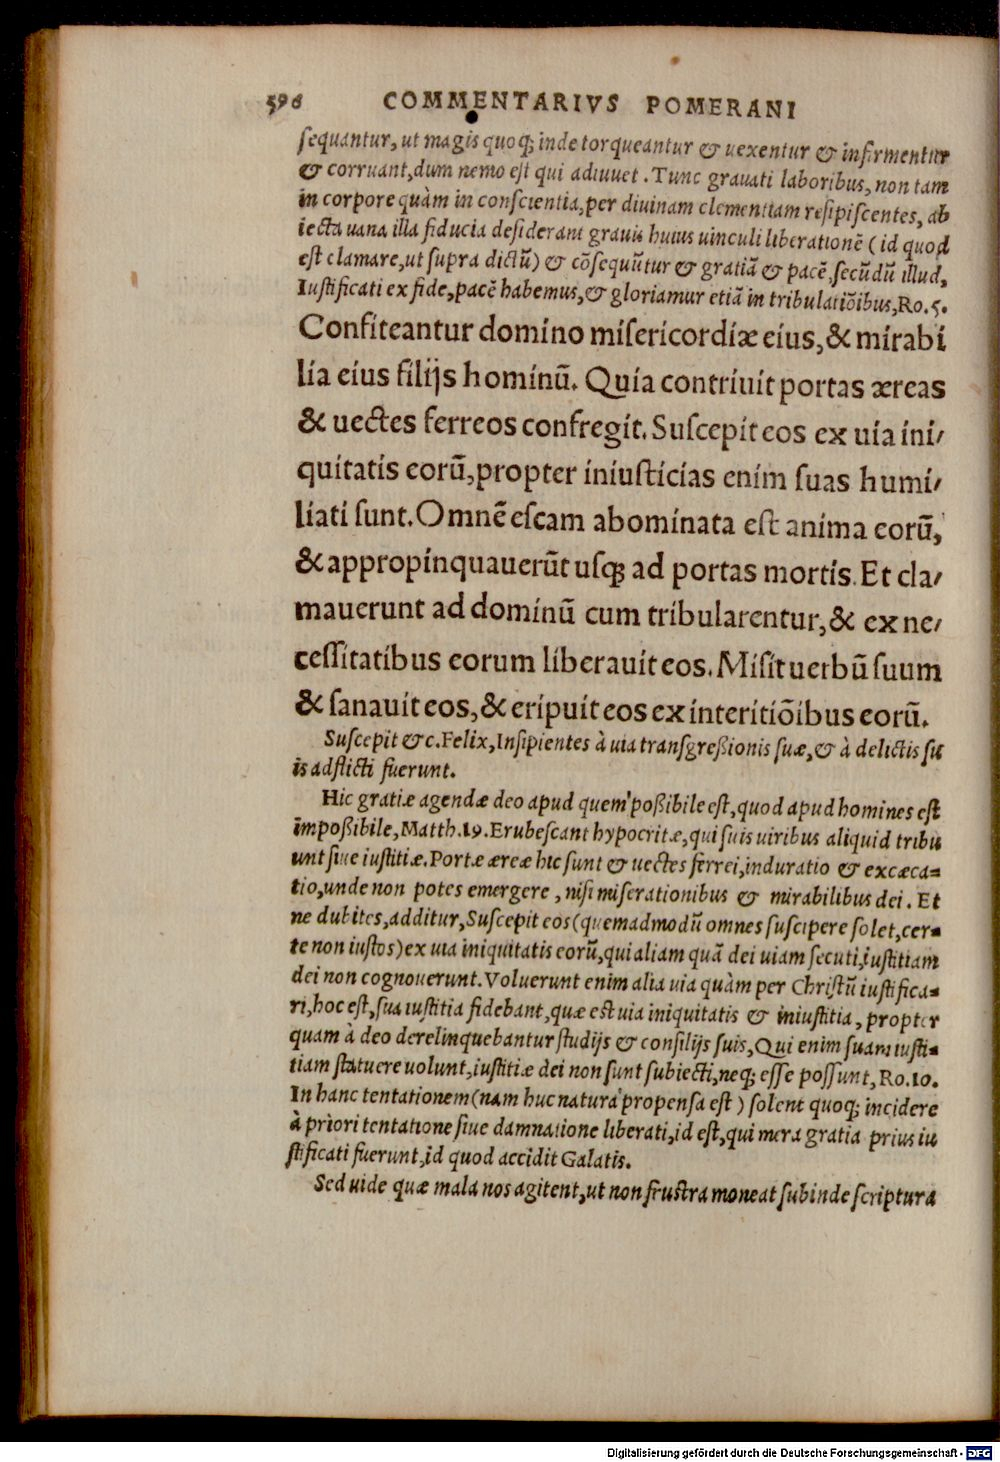 596 COMMENTARIVS POMERANI
ſequantur, ut magis quoq; inde torqueantur & uexentur & infirmentur
& corruant, dum nemo eſt qui adiuuet. Tunc grauati laboribus, non tam
in corpore quàm in conſcientia, per diuinam clementiam reſipiſcentes, ab
iecta uana illa fiducia deſiderant grauis huius uinculi liberationē (id quod
eſt clamare, ut ſupra dictū) & cōſequūtur & gratiā & pacē, ſecūdū illud,
Iuſtificati ex fide, pacē habemus, & gloriamur etiā in tribulatiōibus, Ro. 5.
Confiteantur domino miſericordiæ eius, & mirabi
lia eius filijs hominū. Quia contriuit portas æreas
& uectes ferreos confregit. Suſcepit eos ex uia ini/
quitatis eorū, propter iniuſticias enim ſuas humi/
liati ſunt. Omnē eſcam abominata eſt anima eorū,
& appropinquauerūt uſq; ad portas mortis. Et cla/
mauerunt ad dominū cum tribularentur, & ex ne/
ceſſitatibus eorum liberauit eos. Miſit uerbū ſuum
& ſanauit eos, & eripuit eos ex interitiōibus eorū.
Suſcepit &c. Felix, Inſipientes à uia tranſgreßionis ſuæ, & à delictis ſu
is adflicti fuerunt.
Hic gratiæ agendæ deo apud quem poßibile eſt, quod apud homines eſt
impoßibile, Matth. 19. Erubeſcant hypocritæ, qui ſuis uiribus aliquid tribu
unt ſiue iuſtitiæ. Portæ æreæ hic ſunt & uectes ferrei, induratio & excæca-
tio, unde non potes emergere, niſi miſerationibus & mirabilibus dei. Et
ne dubites, additur, Suſcepit eos (quemadmodū omnes ſuſcipere ſolet, cer-
te non iuſtos) ex uia iniquitatis eorū, qui aliam quā dei uiam ſecuti, iuſtitiam
dei non cognouerunt. Voluerunt enim alia uia quàm per Chriſtū iuſtifica-
ri, hoc eſt, ſua iuſtitia fidebant, quæ eſt uia iniquitatis & iniuſtitia, propter
quam à deo derelinquebantur ſtudijs & conſilijs ſuis, Qui enim ſuam iuſti-
tiam ſtatuere uolunt, iuſtitiæ dei non ſunt ſubiecti, neq; eſſe poſſunt, Ro. 10.
In hanc tentationem (nam huc natura propenſa eſt) ſolent quoq; incidere
à priori tentatione ſiue damnatione liberati, id eſt, qui mera gratia prius iu
ſtificati fuerunt, id quod accidit Galatis.
Sed uide quæ mala nos agitent, ut non fruſtra moneat ſubinde ſcriptura
Digitalisierung gefördert durch die Deutsche Forschungsgemeinschaft - DFG